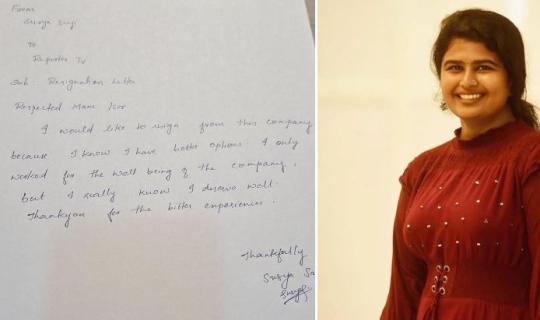 From
Surya Suji
To
Reporter TV
Sub: Resignation Letter
Respected Mam/Sir
I would like to resign from this company
because I know I have better options. I only
worked for the well being of the company,
but I really know I deserve well.
Thankyou for the bitter experiences.
Thankfully
Surya